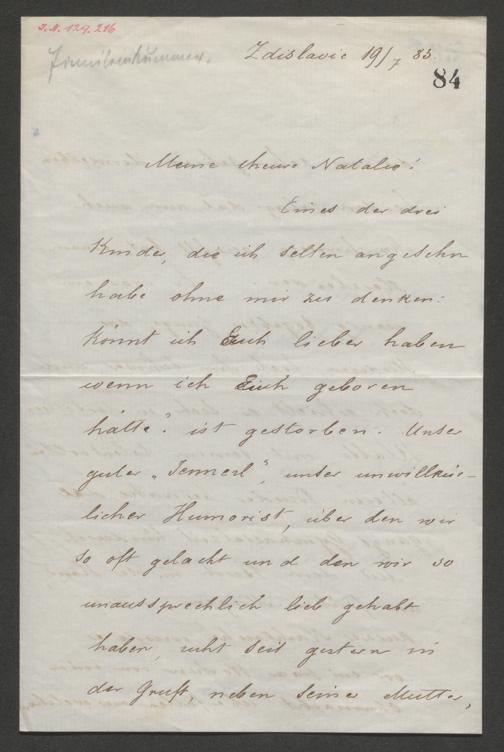 J.N. 129.216
Familienkummer.
Zdislavic 19/7 83.
84
Meine theure Natalie!
Eines der drei
Kinder, die ich selten angesehn
habe ohne mir zu denken:
könnt ich Euch lieber haben
wenn ich Euch geboren
hätte? ist gestorben. Unser
guter „Tennerl“, unser unwillkür-
licher Humorist, über den wir
so oft gelacht und den wir so
unaussprechlich lieb gehabt
haben, ruht seit gestern in
der Gruft, neben seiner Mutter,